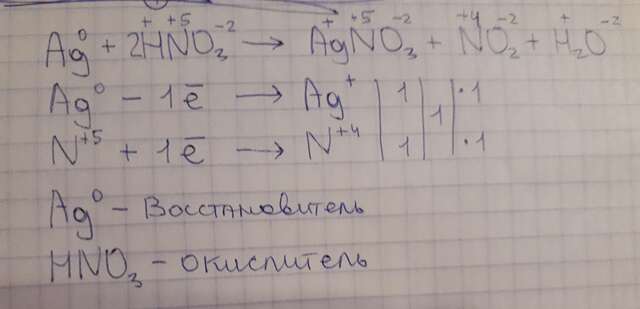 Ag⁰ + 2H⁺N⁺⁵O₃⁻² → Ag⁺N⁺⁵O₃⁻² + N⁺⁴O₂⁻² + H₂⁺O⁻²
Ag⁰ − 1ē → Ag⁺ | 1 | 1 | ·1
N⁺⁵ + 1ē → N⁺⁴ | 1 | | ·1
Ag⁰ – Восстановитель
HNO₃ – окислитель